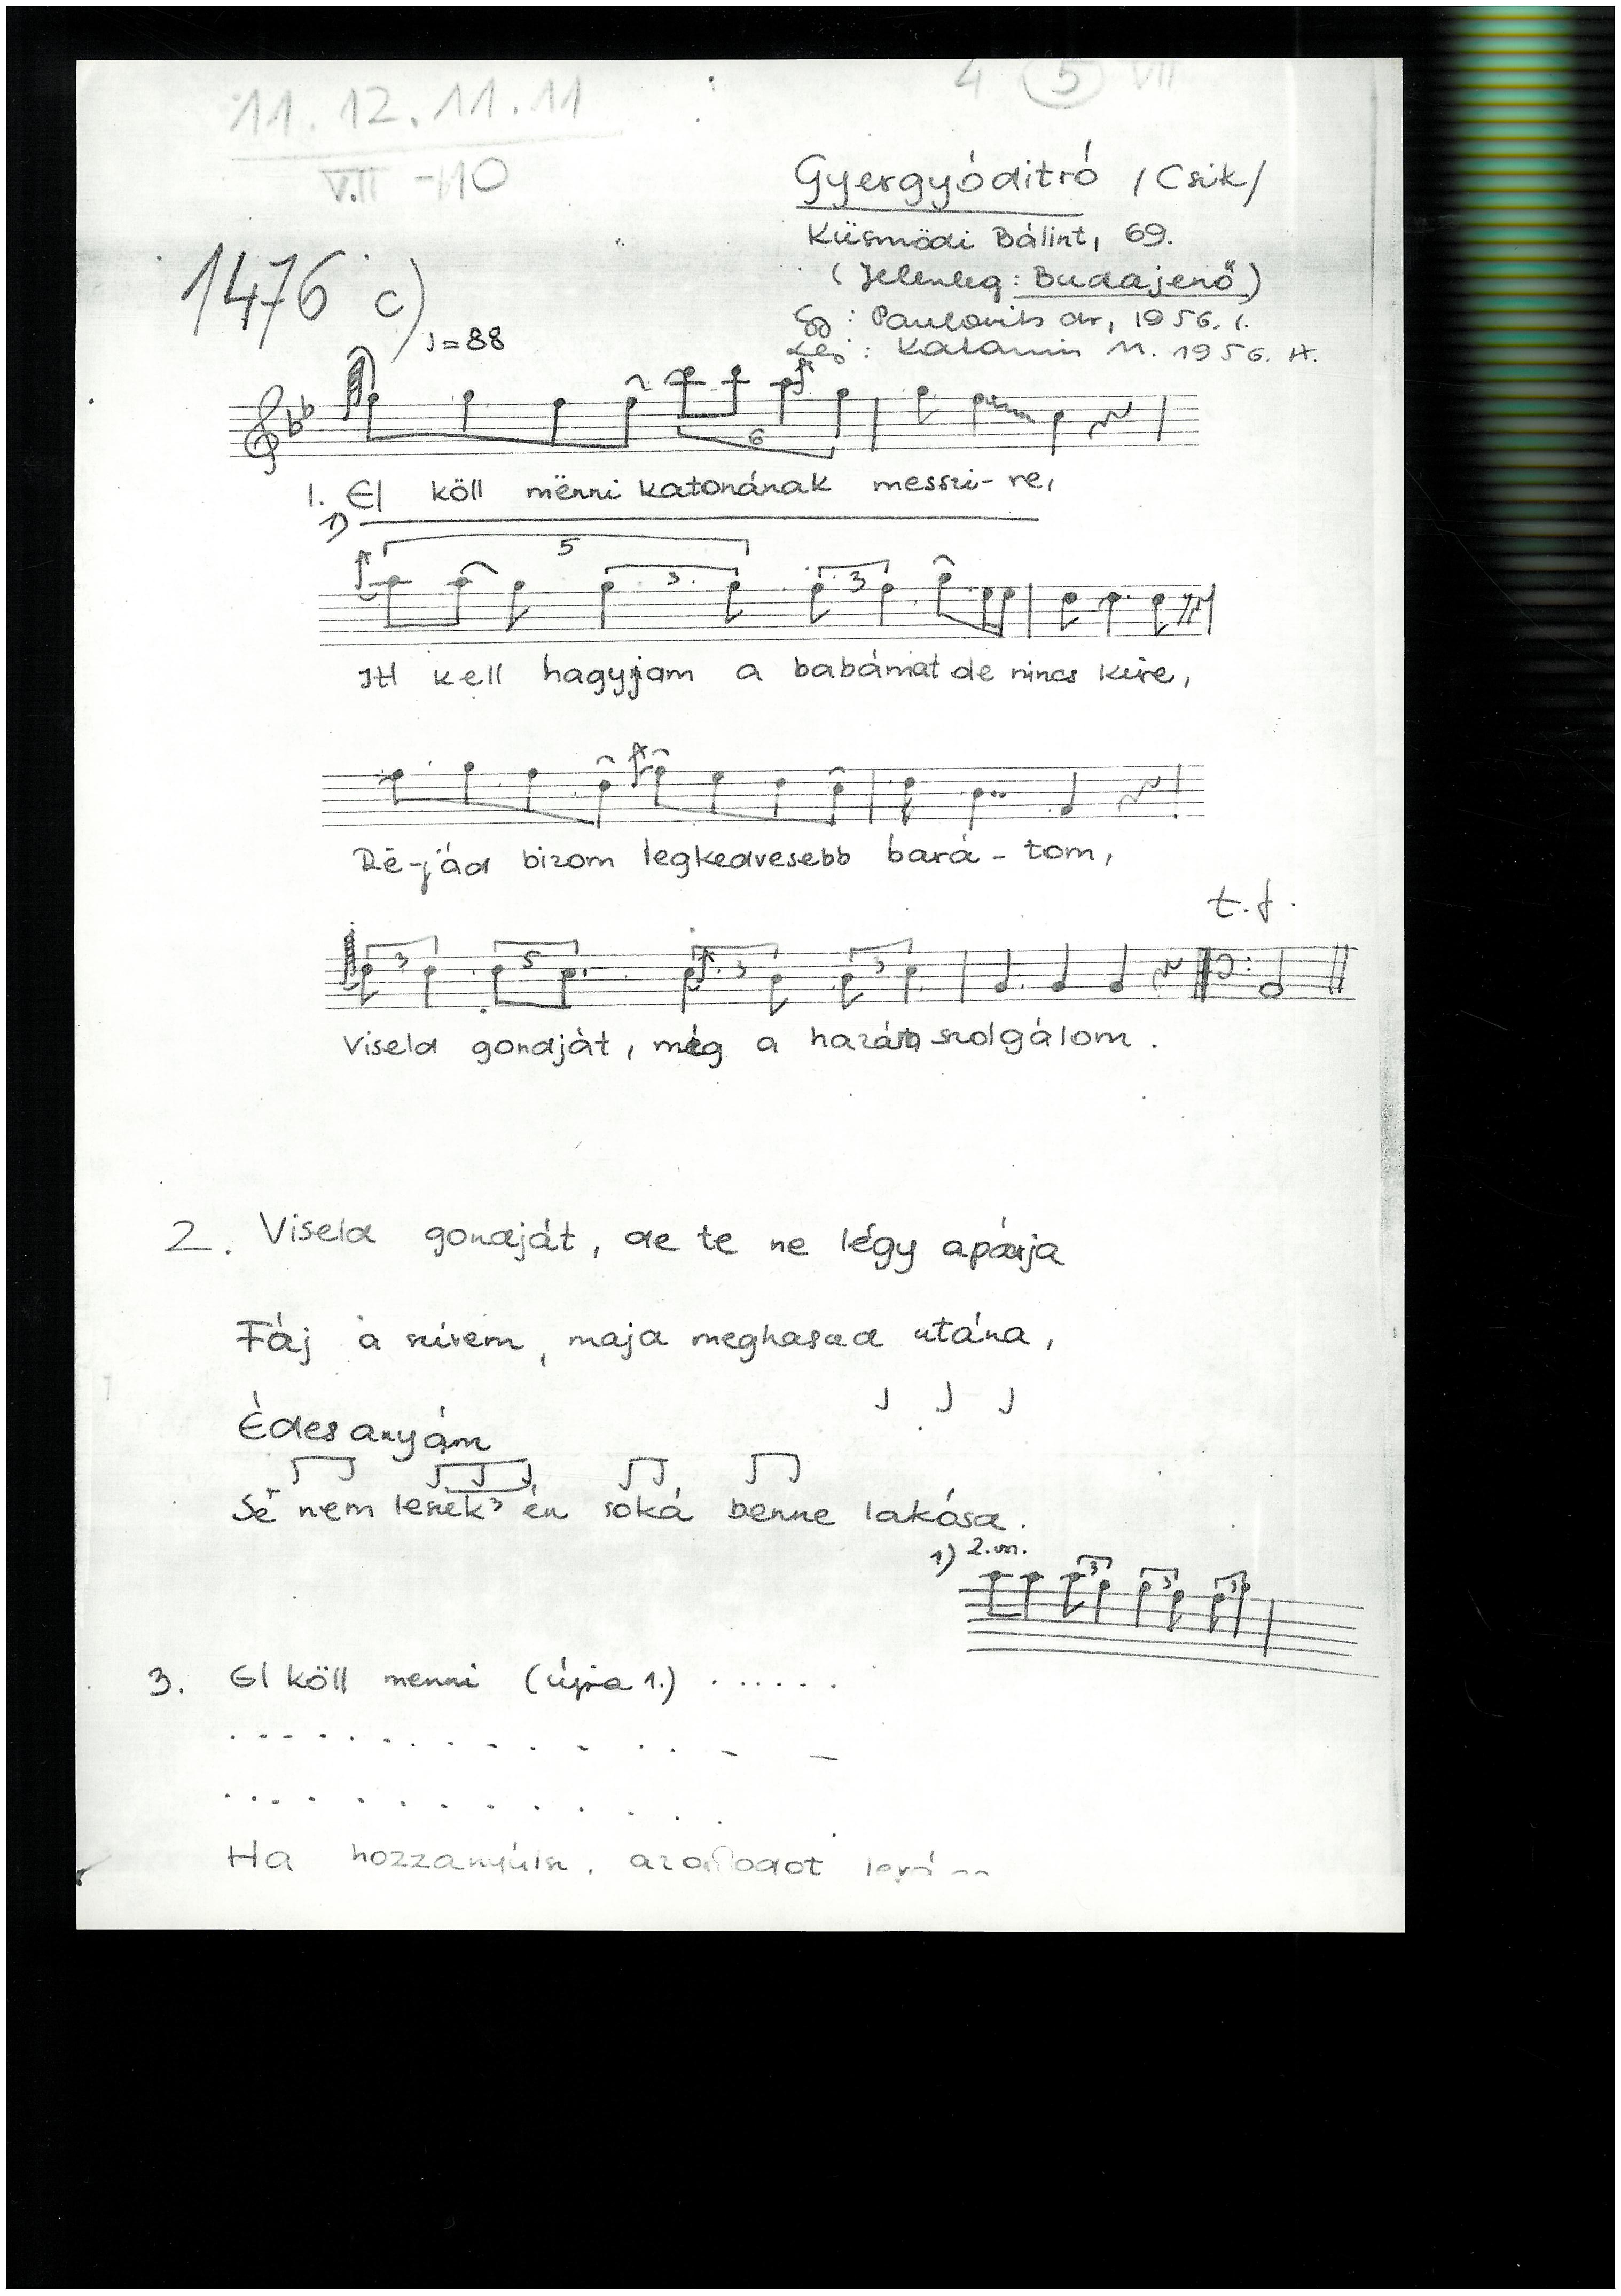 11. 12. 11. 11
4 5 VII
VII - 10
Gyergyóditró /Csik/
Küsmödi Bálint, 69.
(Jelenleg: Budajenő)
Gy: Paulovits 1956. I.
Lej: Katanics M. 1956.
1476 c)
♩=88
6
1. El köll mënni katonának messzi-re,
1)
5
3
3
Itt kell hagyjam a babámat de nincs kire,
Rë-jád bizom legkedvesebb bará-tom,
t. f.
3 5 3 3
Viseld gondját, míg a hazám szolgálom.
2. Viseld gondját, de te ne légy apárja
Fáj a szivem, majd meghasad utána,
Édesanyám
3
Së nem leszek én soká benne lakósa.
1) 2. vsz.
3 3 3
3. El köll menni (újra 1.) ......
Ha hozzanyúlsz,